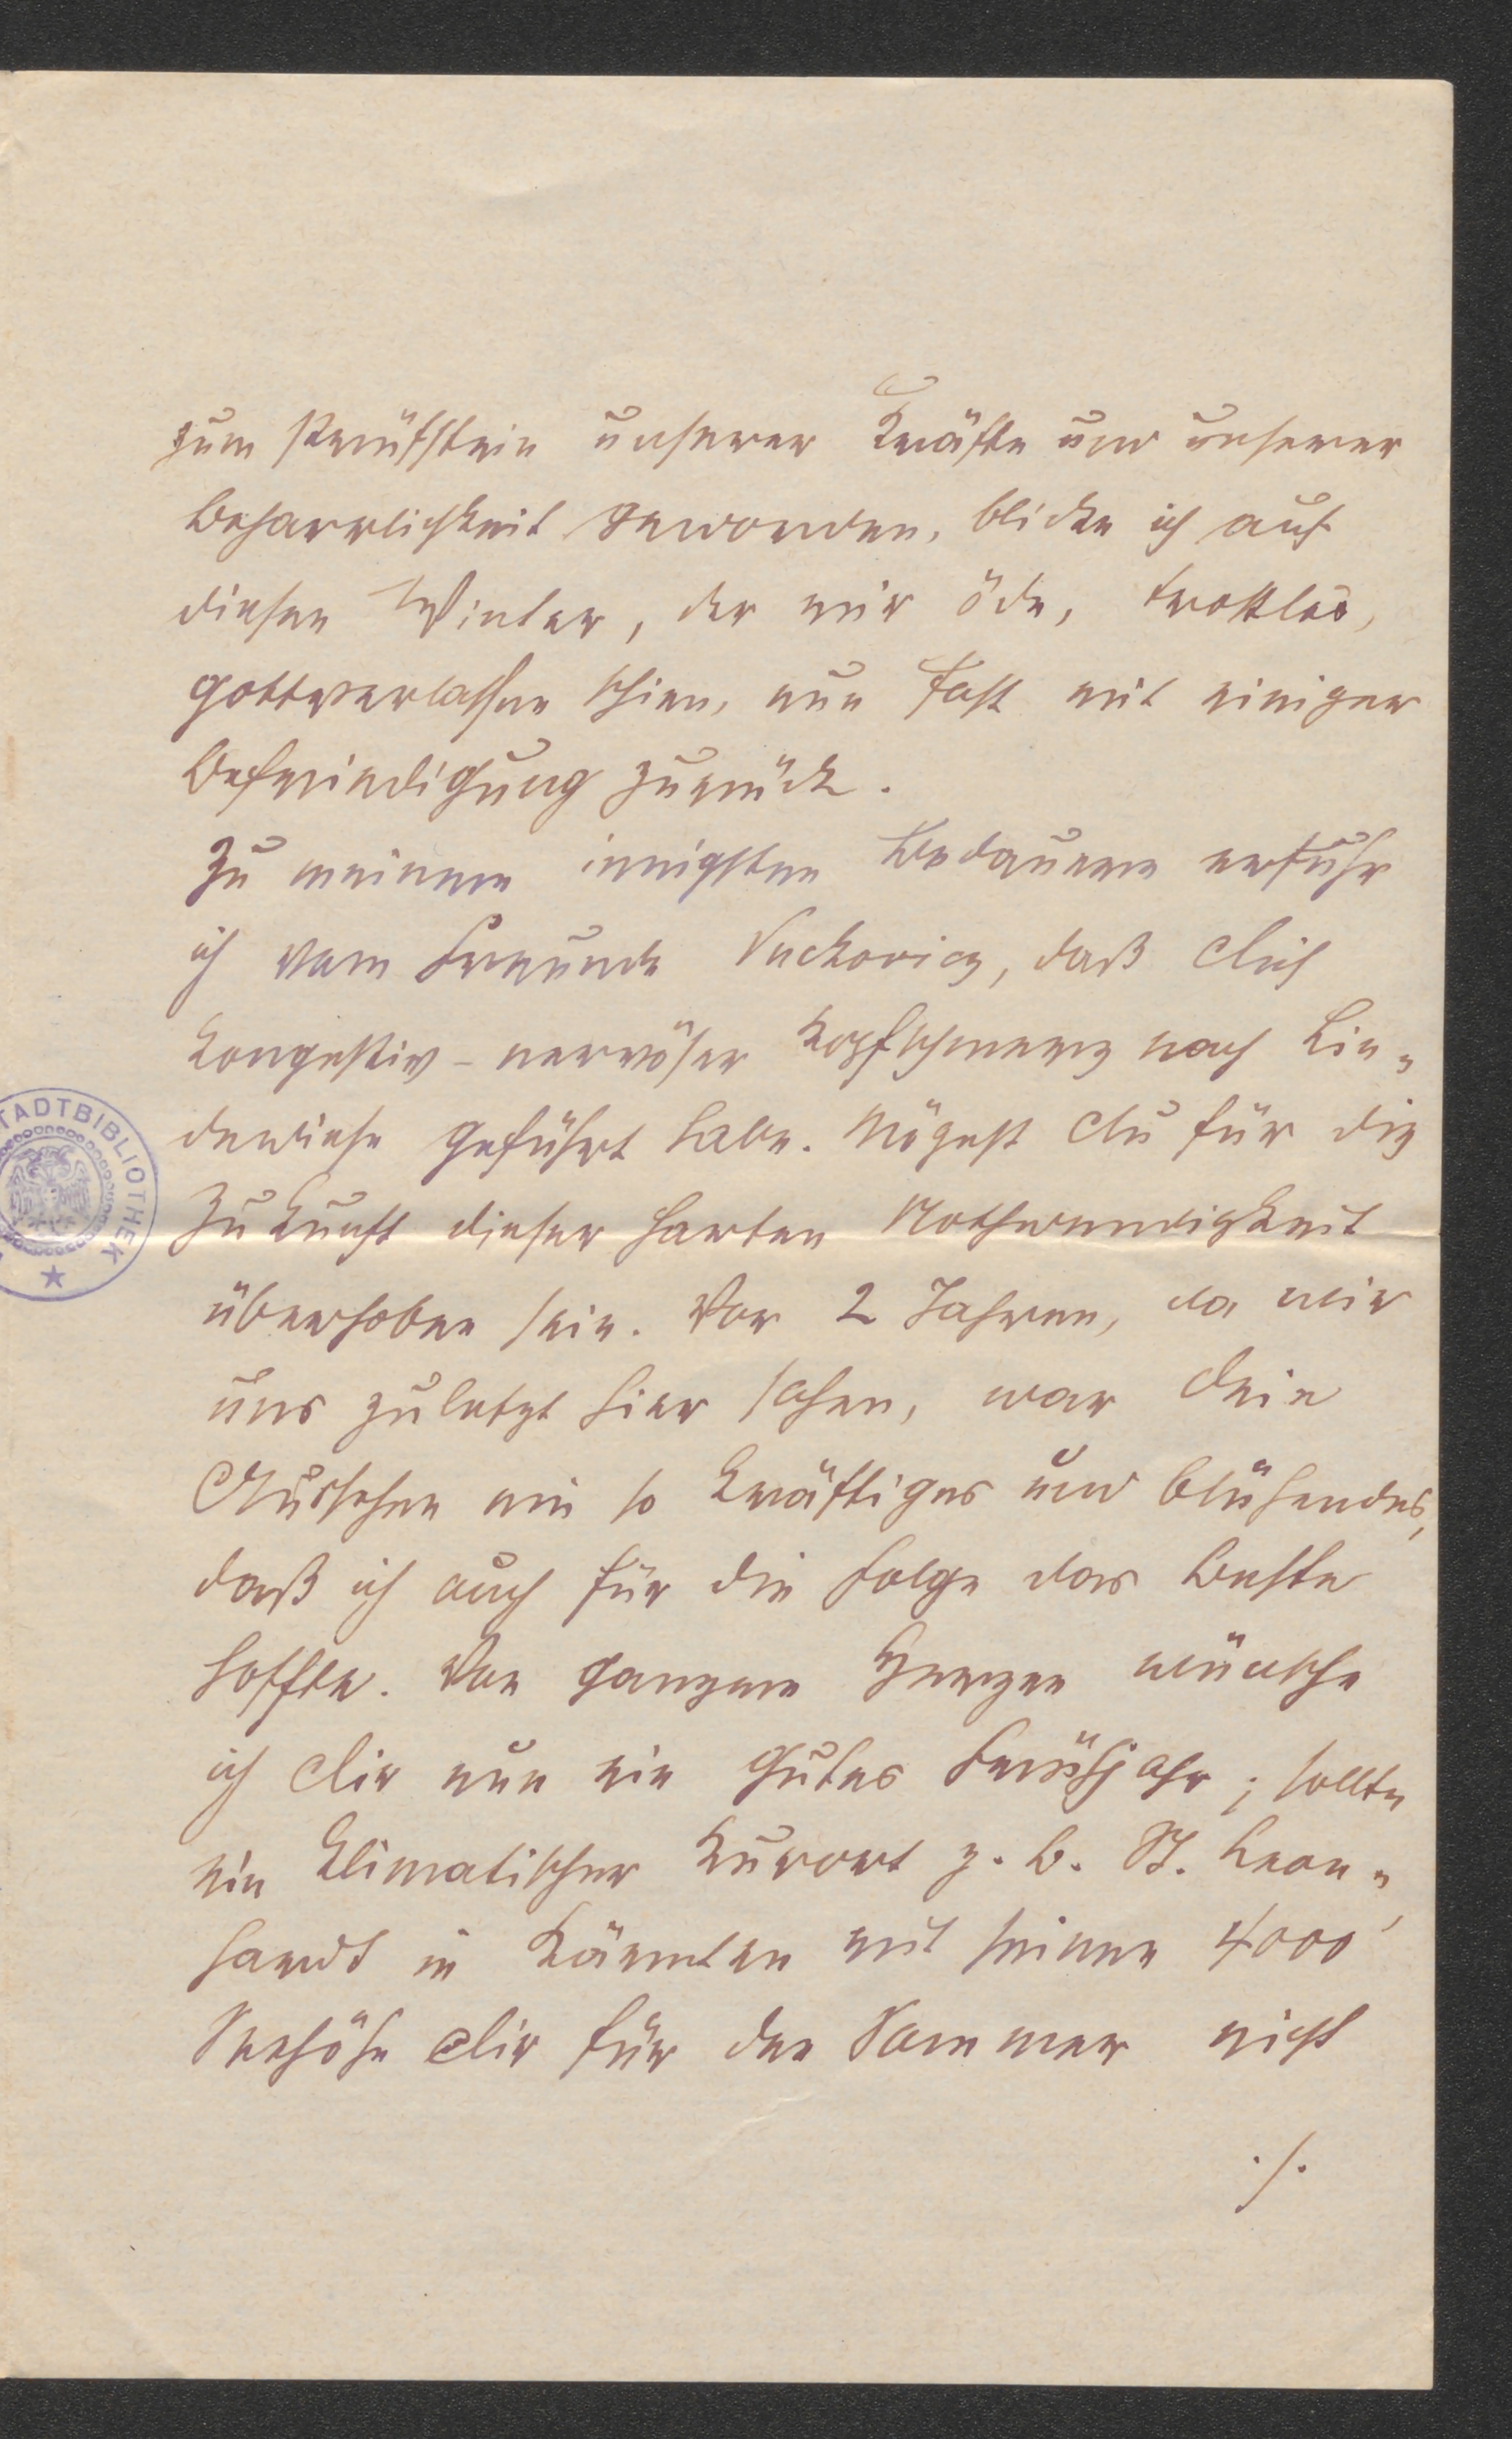 zum Prüfstein unserer Kräfte und unserer
Beharrlichkeit geworden, blicke ich auf
diesen Winter, der mir öde, trostlos,
gottverlassen schien, nun fast mit einiger
Befriedigung zurück.
Zu meinem innigsten Bedauern erfuhr
ich vom Freunde Suckovicz, daß Dich
kongestiv-nervöser Kopfschmerz nach Lin-
dewiese geführt habe. Mögest Du für die
Zukunft dieser harten Nothwendigkeit
überhoben sein. Vor 2 Jahren, da wir
uns zuletzt hier sahen, war Dein
Aussehen ein so kräftiges und blühendes,
daß ich auch für die Folge das Beste
hoffte. Von ganzem Herzen wünsche
ich Dir nun ein gutes Frühjahr; sollte
ein klimatischer Kurort z. B. St. Leon-
hardt in Kärnten mit seinen 4000'
Seehöhe Dir für den Sommer nicht
./.
STADTBIBLIOTHEK